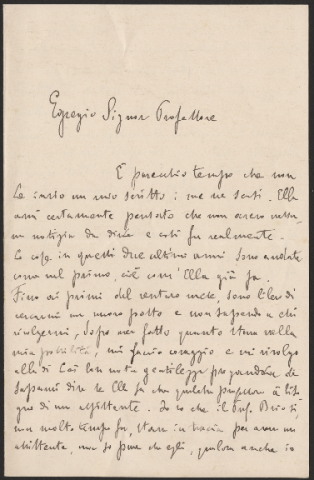 Egregio Signor Professore
È parecchio tempo che non
Le invio un mio scritto; me ne scusi. Ella
avrà certamente pensato che non avevo
notizia da dirLe e così fu realmente.
Le cose in questi due ultimi anni sono andate
come nel primo, cioè com' Ella già sa.
Fino ai primi del venturo mese, sono libero di
un nuovo posto e non sapendo a chi
rivolgermi, dopo aver fatto quanto stava nella
mia possibilità, mi faccio coraggio e mi rivolgo
alla di Lei ben nota gentilezza pregandola di
sapermi dire se Ella sa che qualche professore à biso-
gno di un assistente. Io so che il Prof. Briosi,
non molto tempo fa, stava in traccia per avere un
assistente, ma so pure che egli, qualora anche io